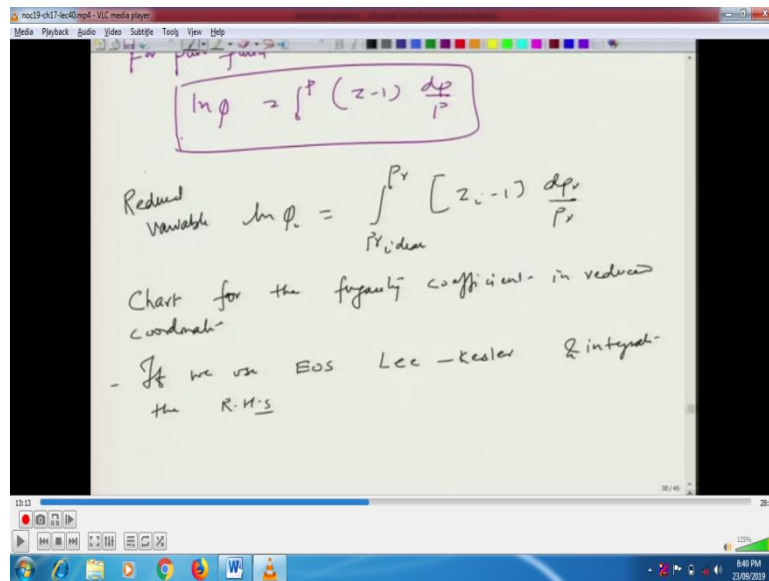 noc19-ch17-lec40.mp4 - VLC media player
Media Playback Audio Video Subtitle Tools View Help
for pure fluid
ln φ = ∫₀^P (z-1) dp/P
Reduced
variable ln φᵢ = ∫_{Pr, ideal}^{Pr} [zᵢ-1] dpr/Pr
Chart for the fugacity coefficient in reduced
coordinate
- If we use EOS Lee-Kesler & integrate
the R.H.S
38/46
13:13
125%
8:40 PM
23/09/2019